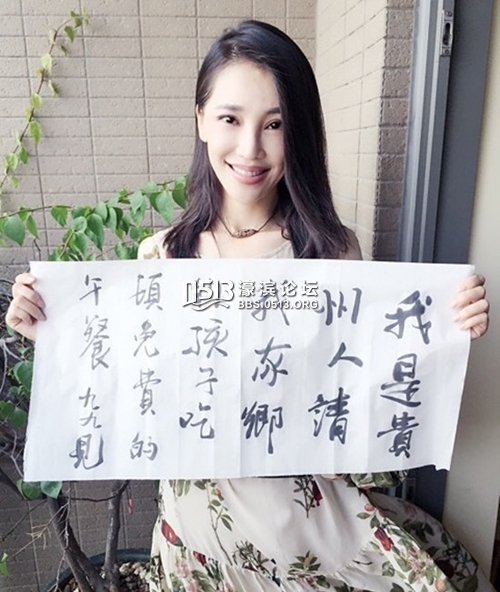 我是貴
州人請
我家鄉
孩子吃
頓免費的
午餐 九九見
0513 濠滨论坛
BBS.0513.ORG